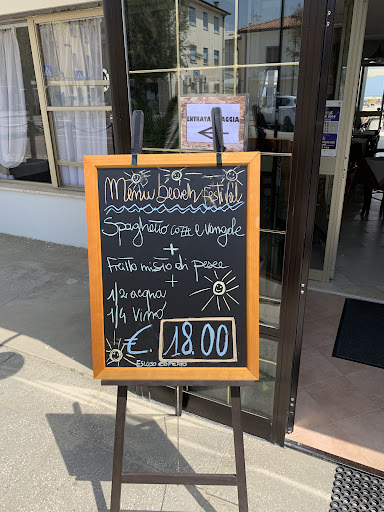 ENTRATA SPIAGGIA
Menu Beach Festival
Spaghetto cozze e vongole
+
Fritto misto di pesce
+
1/2 acqua
1/4 vino
€. 18.00